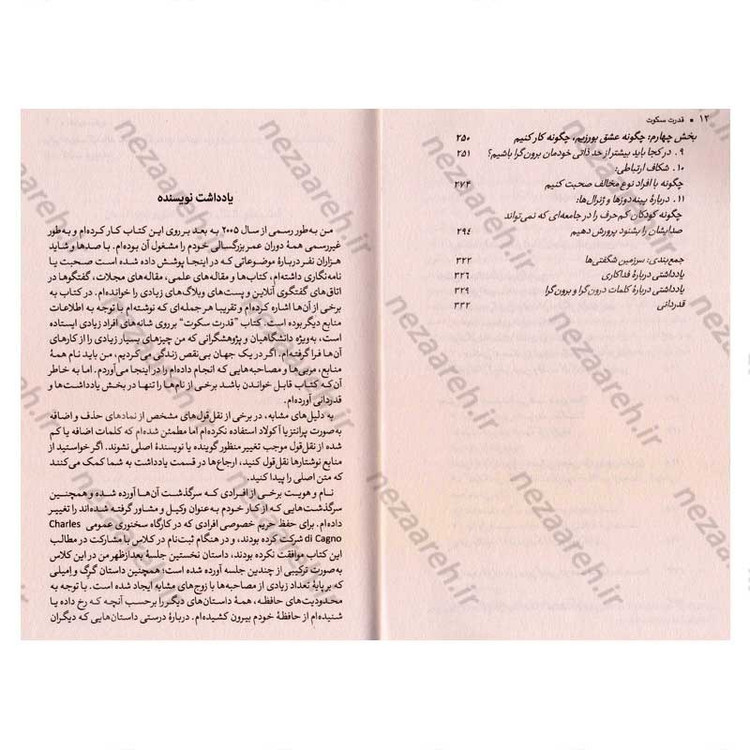 ۱۲ ■ قدرت سکوت
بخش چهارم: چگونه عشق بورزیم، چگونه کار کنیم ۲۵۰
۹. در کجا باید بیشتر از حد ذاتی خودمان برون‌گرا باشیم؟ ۲۵۱
۱۰. شکاف ارتباطی:
چگونه با افراد نوع مخالف صحبت کنیم ۲۷۴
۱۱. دربارهٔ پینه‌دوزها و ژنرال‌ها:
چگونه کودکان کم‌حرف را در جامعه‌ای که نمی‌تواند
صدایشان را بشنود پرورش دهیم ۲۹۴
جمع‌بندی: سرزمین شگفتی‌ها ۳۲۲
یادداشتی دربارهٔ فداکاری ۳۲۶
یادداشتی دربارهٔ کلمات درون‌گرا و برون‌گرا ۳۲۹
قدردانی ۳۳۲
یادداشت نویسنده
من به‌طور رسمی از سال ۲۰۰۵ به بعد بر روی این کتاب کار کرده‌ام و به‌طور
غیررسمی همهٔ دوران عمر بزرگسالی خودم را مشغول آن بوده‌ام. با صدها و شاید
هزاران نفر دربارهٔ موضوعاتی که در اینجا پوشش داده شده است صحبت یا
نامه‌نگاری داشته‌ام، کتاب‌ها و مقاله‌های علمی، مقاله‌های مجلات، گفتگوها در
اتاق‌های گفتگوی آنلاین و پست‌های وبلاگ‌های زیادی را خوانده‌ام. در کتاب به
برخی از آن‌ها اشاره کرده‌ام و تقریبا هر جمله‌ای که نوشته‌ام با توجه به اطلاعات
منابع دیگر بوده است. کتاب "قدرت سکوت" بر روی شانه‌های افراد زیادی ایستاده
است، به‌ویژه دانشگاهیان و پژوهشگرانی که من چیزهای بسیار زیادی را از کارهای
آن‌ها فرا گرفته‌ام. اگر در یک جهان بی‌نقص زندگی می‌کردیم، من باید نام همهٔ
منابع، مربی‌ها و مصاحبه‌هایی که انجام داده‌ام را در اینجا می‌آوردم. اما به خاطر
آن‌که کتاب قابل خواندن باشد برخی از نام‌ها را تنها در بخش یادداشت‌ها و
قدردانی آورده‌ام.
به دلیل‌های مشابه، در برخی از نقل‌قول‌های مشخص از نمادهای حذف و اضافه
به‌صورت پرانتز یا آکولاد استفاده نکرده‌ام اما مطمئن شده‌ام که کلمات اضافه یا کم
شده از نقل‌قول موجب تغییر منظور گوینده یا نویسندهٔ اصلی نشوند. اگر خواستید از
منابع نوشتارها نقل‌قول کنید، ارجاع‌ها در قسمت یادداشت به شما کمک می‌کنند
که متن اصلی را پیدا کنید.
نام و هویت برخی از افرادی که سرگذشت آن‌ها آورده شده و همچنین
سرگذشت‌هایی که از کار خودم به عنوان وکیل و مشاور گرفته شده‌اند را تغییر
داده‌ام. برای حفظ حریم خصوصی افرادی که در کارگاه سخنوری عمومی Charles
di Cagno شرکت کرده بودند، و در هنگام ثبت‌نام در کلاس با مشارکت در مطالب
این کتاب موافقت نکرده بودند، داستان نخستین جلسهٔ بعدازظهر من در این کلاس
به‌صورت ترکیبی از چندین جلسه آورده شده است؛ همچنین داستان گرگ و امیلی
که بر پایهٔ تعداد زیادی از مصاحبه‌ها با زوج‌های مشابه ایجاد شده است. با توجه به
محدودیت‌های حافظه، همهٔ داستان‌های دیگر را برحسب آنچه که رخ داده یا
شنیده‌ام از حافظهٔ خودم بیرون کشیده‌ام. دربارهٔ درستی داستان‌هایی که دیگران
nezaareh.ir